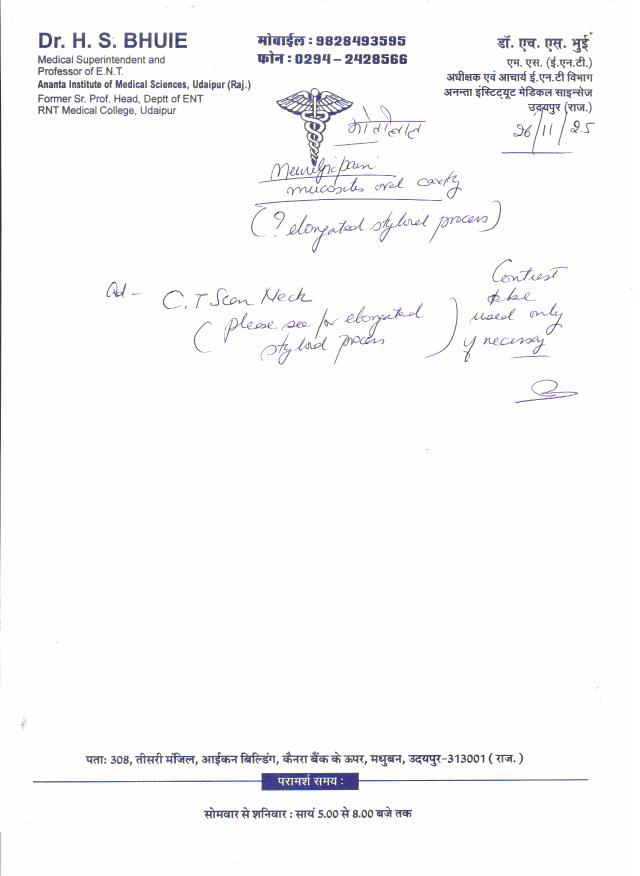 Dr. H. S. BHUIE
Medical Superintendent and
Professor of E.N.T.
Ananta Institute of Medical Sciences, Udaipur (Raj.)
Former Sr. Prof. Head, Deptt of ENT
RNT Medical College, Udaipur
मोबाईल : 9828493595
फोन : 0294 – 2428566
डॉ. एच. एस. भुई
एम. एस. (ई.एन.टी.)
अधीक्षक एवं आचार्य ई.एन.टी विभाग
अनन्ता इंस्टिट्यूट मेडिकल साइन्सेज
उदयपुर (राज.)
26/11/25
pain
mucosites oral cavity
(? elongated styloid process)
Ad – C.T Scan Neck
(please see for elongated
styloid process)
Contrast
used only
if necessary
पताः 308, तीसरी मंजिल, आईकन बिल्डिंग, कैनरा बैंक के ऊपर, मधुबन, उदयपुर-313001 ( राज. )
परामर्श समय :
सोमवार से शनिवार : सायं 5.00 से 8.00 बजे तक